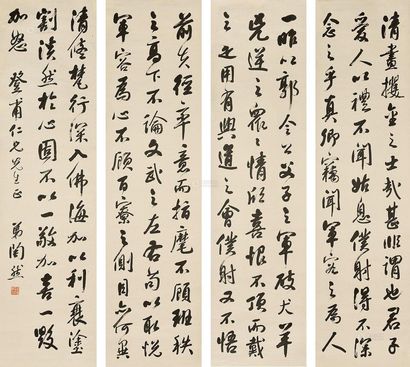 清晝攫金之士哉甚非謂也君子
愛人以禮不聞姑息僕射得不深
念之乎真卿竊聞軍容之為人
一昨以郭令公父子之軍破犬羊
兇逆之眾之情欣喜恨不頂而戴
之是用有興道之會僕射又不悟
前失徑率意而指麾不顧班秩
之高下不論文武之左右苟以取悅
軍容為心不顧百寮之側目亦何異
清修梵行深入佛海加以利衰塗
割淡然於心固不以一敬加喜一毀
加怒 甫仁兄先生正
弟陶然